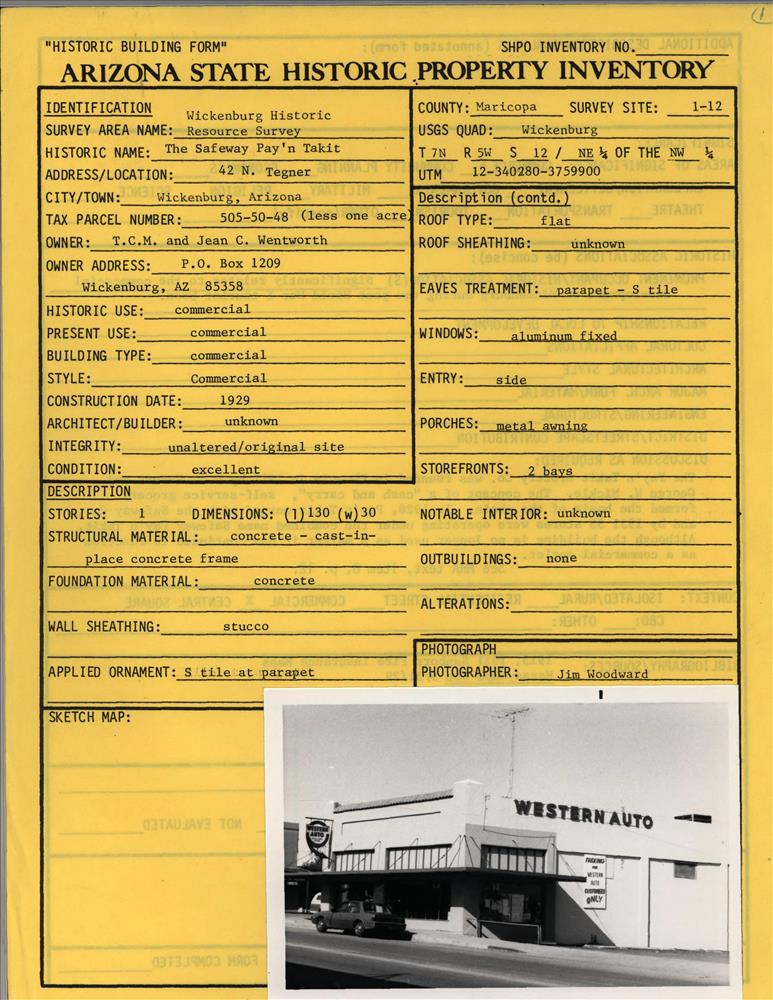 1
"HISTORIC BUILDING FORM"
SHPO INVENTORY NO.
ARIZONA STATE HISTORIC PROPERTY INVENTORY
IDENTIFICATION
SURVEY AREA NAME: Wickenburg Historic
Resource Survey
HISTORIC NAME: The Safeway Pay'n Takit
ADDRESS/LOCATION: 42 N. Tegner
CITY/TOWN: Wickenburg, Arizona
TAX PARCEL NUMBER: 505-50-48 (less one acre)
OWNER: T.C.M. and Jean C. Wentworth
OWNER ADDRESS: P.O. Box 1209
Wickenburg, AZ 85358
HISTORIC USE: commercial
PRESENT USE: commercial
BUILDING TYPE: commercial
STYLE: Commercial
CONSTRUCTION DATE: 1929
ARCHITECT/BUILDER: unknown
INTEGRITY: unaltered/original site
CONDITION: excellent
DESCRIPTION
STORIES: DIMENSIONS: (l)130 (w)30
STRUCTURAL MATERIAL: concrete - cast-in-
place concrete frame
FOUNDATION MATERIAL: concrete
WALL SHEATHING: stucco
APPLIED ORNAMENT: S tile at parapet
COUNTY: Maricopa SURVEY SITE: 1-12
USGS QUAD: Wickenburg
T 7N R 5W S 12 / NE ¼ OF THE NW ¼
UTM 12-340280-3759900
Description (contd.)
ROOF TYPE: flat
ROOF SHEATHING: unknown
EAVES TREATMENT: parapet - S tile
WINDOWS: aluminum fixed
ENTRY: side
PORCHES: metal awning
STOREFRONTS: 2 bays
NOTABLE INTERIOR: unknown
OUTBUILDINGS: none
ALTERATIONS:
PHOTOGRAPH
PHOTOGRAPHER: Jim Woodward
SKETCH MAP:
WESTERN AUTO
WESTERN
AUTO
PARKING
FOR
WESTERN
AUTO
CUSTOMERS
ONLY